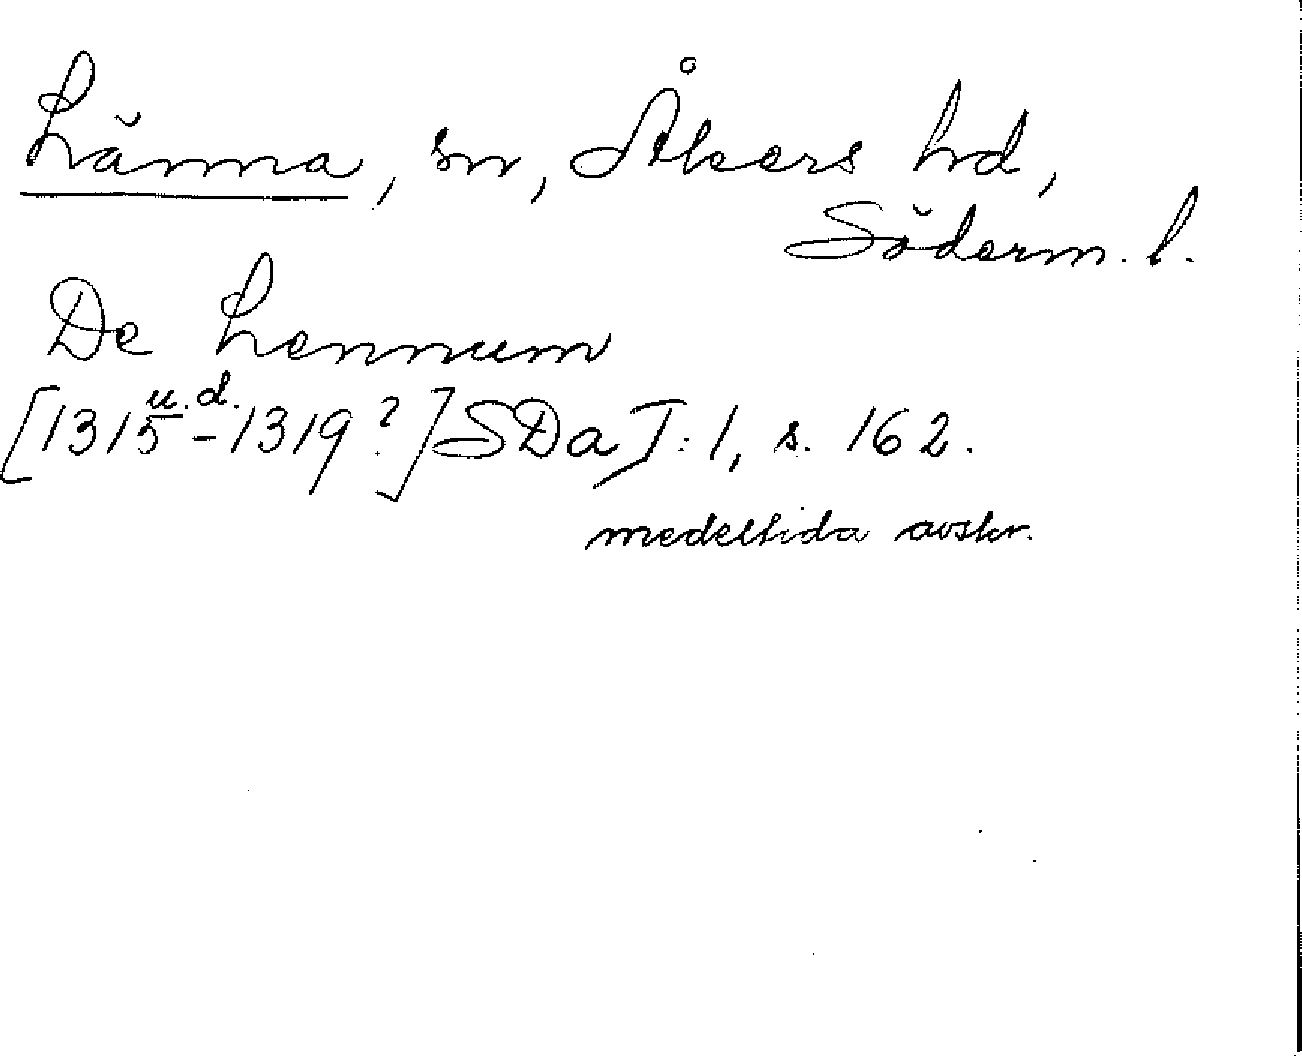 Länna, sn, Åkers hd,
Söderm. l.
De Lennum
u. d.
[1315-1319?] SDa I:1, s. 162.
medeltida avskr.